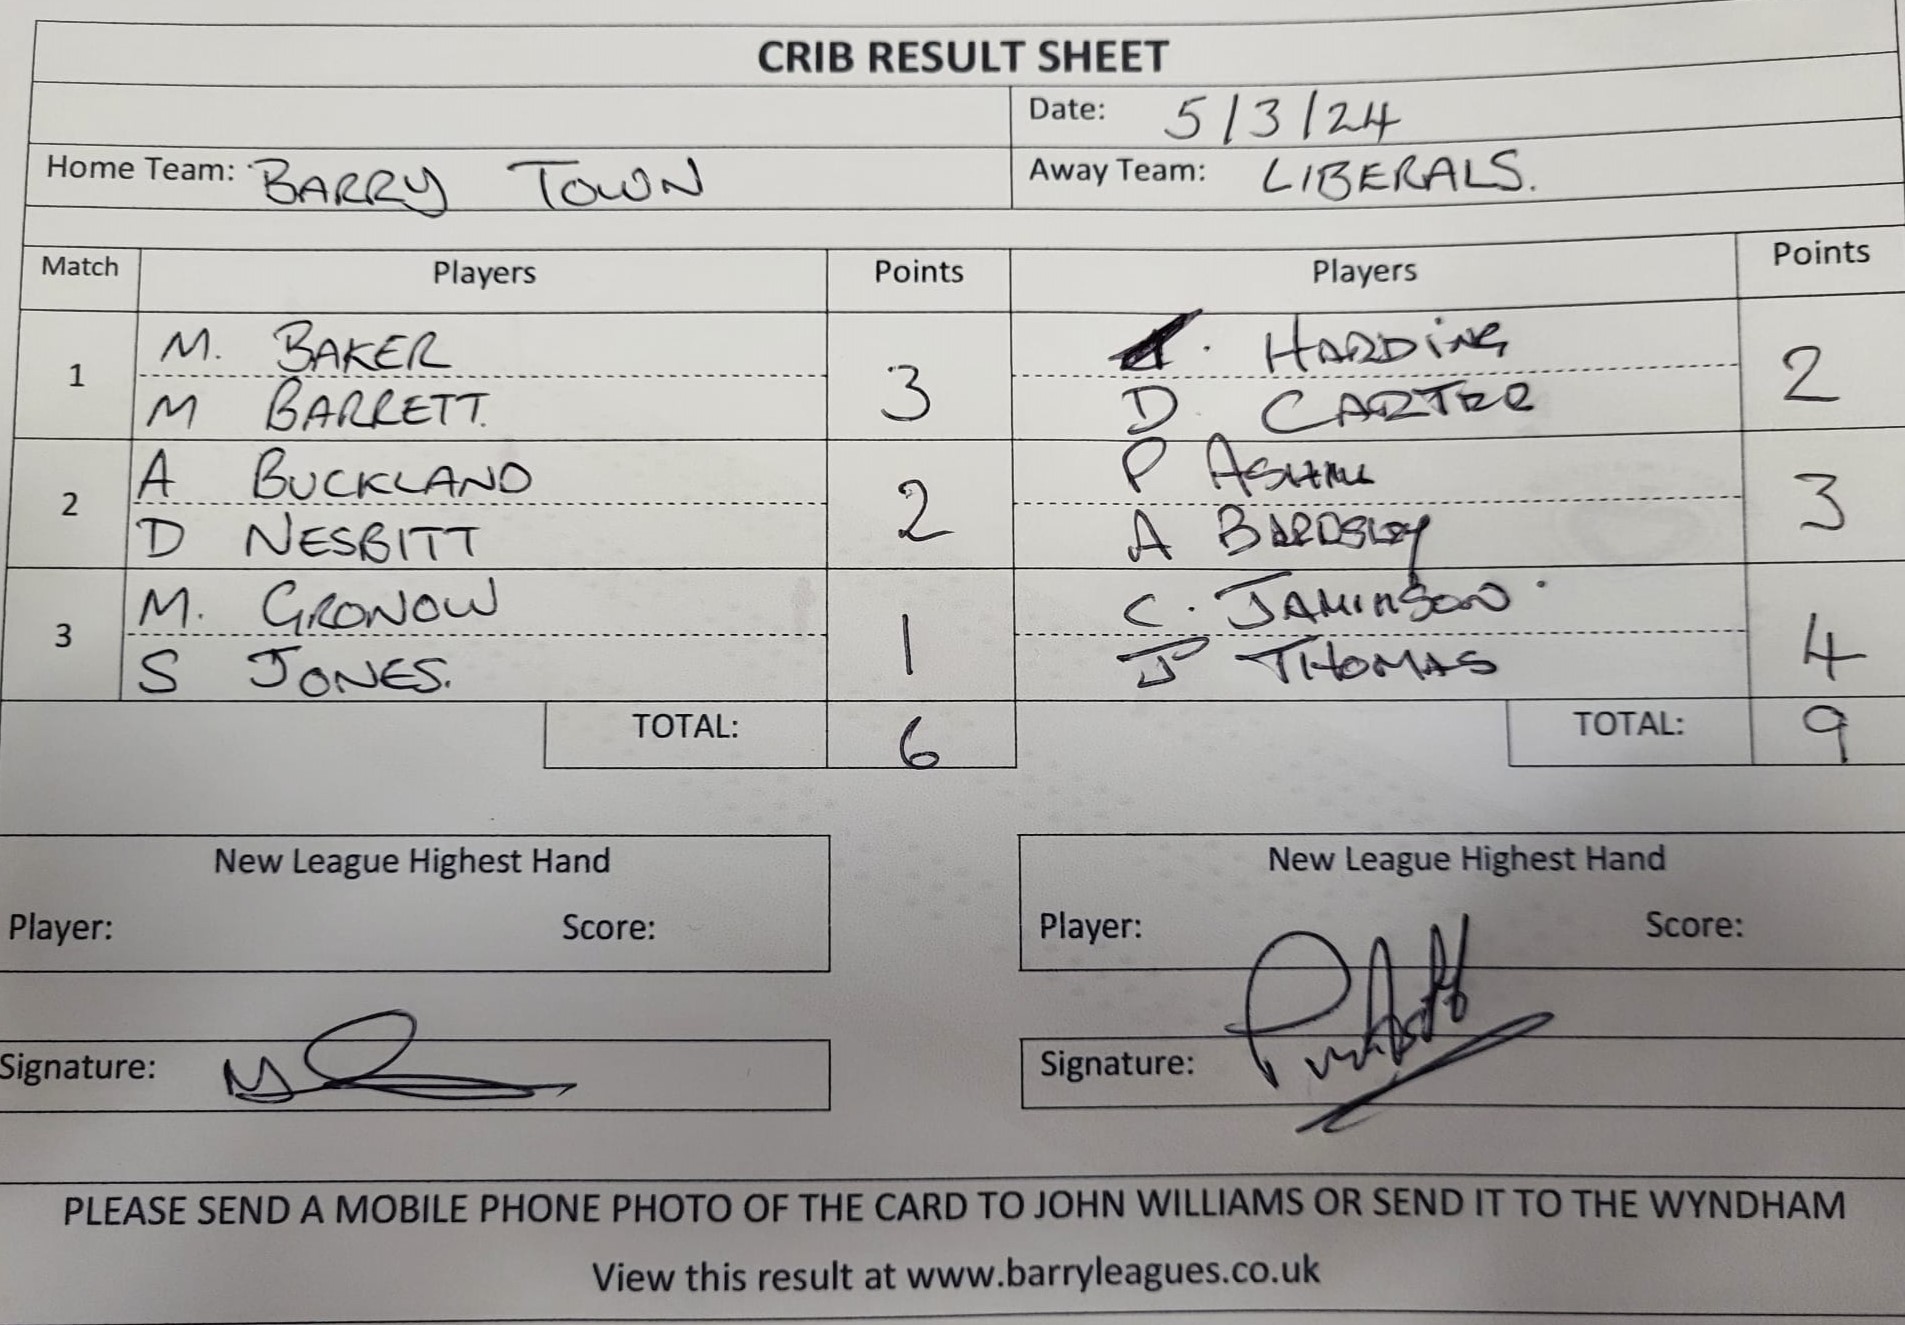 CRIB RESULT SHEET
Date: 5/3/24
Home Team: BARRY TOWN Away Team: LIBERALS.
Match Players Points Players Points
1 M. BAKER 3 HARDING 2
M BARRETT. D. CARTER
2 A BUCKLAND 2 P ASHILL 3
D NESBITT A BARDSLEY
3 M. GRONOW 1 C. JAMINSON 4
S JONES. J THOMAS
TOTAL: 6 TOTAL: 9
New League Highest Hand New League Highest Hand
Player: Score: Player: Score:
Signature: Signature:
PLEASE SEND A MOBILE PHONE PHOTO OF THE CARD TO JOHN WILLIAMS OR SEND IT TO THE WYNDHAM
View this result at www.barryleagues.co.uk